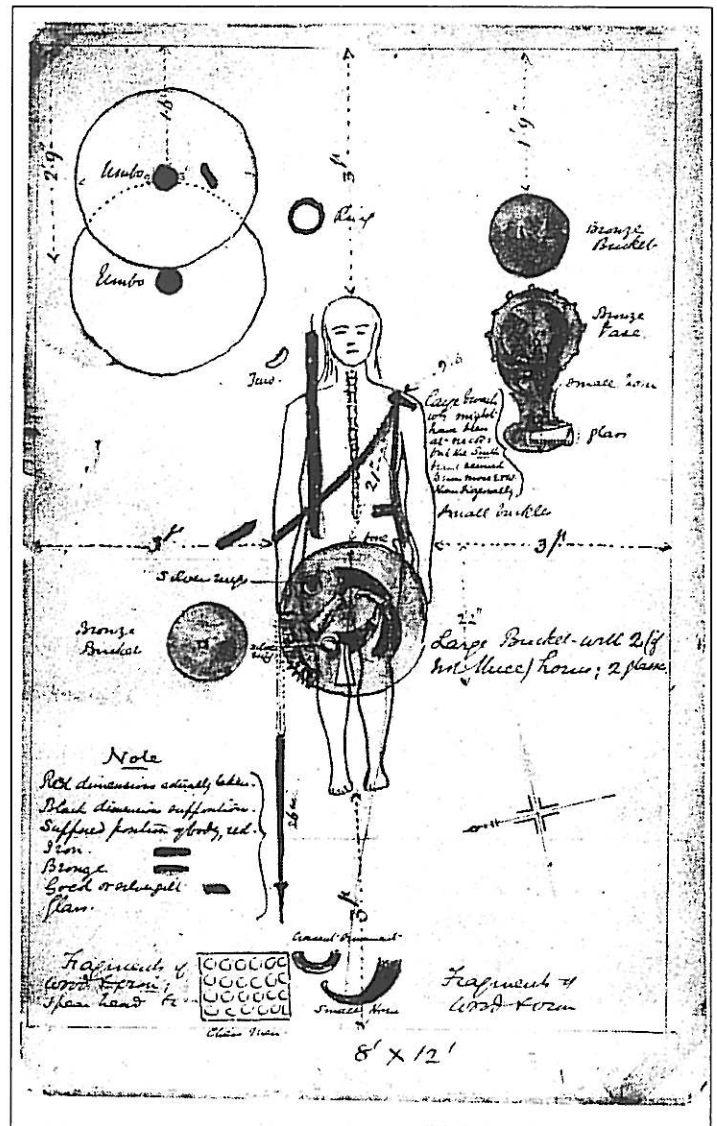 2' 9"
1' 8"
3 ft
1' 9"
Umbo
Umbo
Ring
Bronze
Bucket
Bronze
Vase
small horn
glass
Large brooch
wh. might
have been
at
but the South
seemed
more
than diagonally
21"
Small buckles
3 ft
3 ft
Silver cups
Bronze
Bucket
22"
Large Bucket with 2 (if
not three) horns; 2 glasses
Note
Red dimensions actually taken.
Black dimensions supposition.
Supposed position of body, red.
Iron.
Bronze
Gold or silver gilt
Glass.
3 ft
Crescent Ornament
Fragments of
wood & iron,
spear head &c
Chess Men
Small Horn
Fragments of
wood & iron
8' X 12'